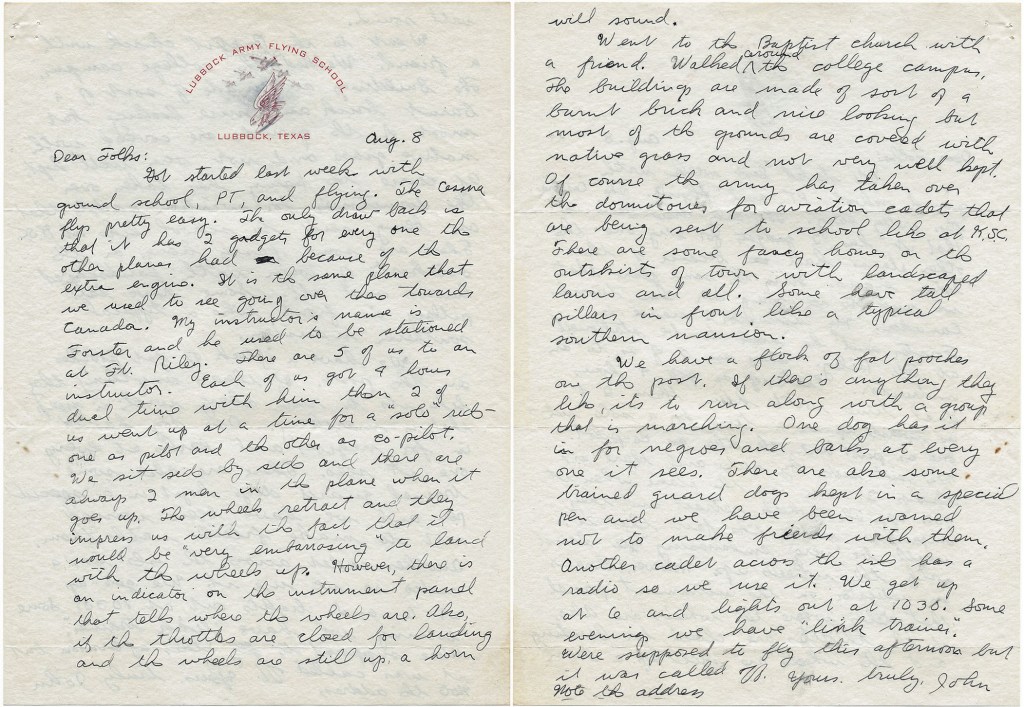 LUBBOCK ARMY FLYING SCHOOL
LUBBOCK, TEXAS
Aug. 8
Dear Folks:
Got started last week with
ground school, PT, and flying. The Cessna
flys pretty easy. The only draw back is
that it has 2 gadgets for every one the
other planes had because of the
extra engine. It is the same plane that
we used to see going over there towards
Canada. My instructor's name is
Forster and he used to be stationed
at Ft. Riley. There are 5 of us to an
instructor. Each of us got 4 hours
duel time with him then 2 of
us went up at a time for a "solo" ride -
one as pilot and the other as co-pilot.
We sit side by side and there are
always 2 men in the plane when it
goes up. The wheels retract and they
impress us with the fact that it
would be "very embarrasing" to land
with the wheels up. However, there is
an indicator on the instrument panel
that tells where the wheels are. Also,
if the throttles are closed for landing
and the wheels are still up a horn
will sound.
Went to the Baptist church with
a friend. Walked around the college campus.
The buildings are made of sort of a
burnt brick and nice looking but
most of the grounds are covered with
native grass and not very well kept.
Of course the army has taken over
the dormitories for aviation cadets that
are being sent to school like at K.S.C.
There are some fancy homes on the
outskirts of town with landscaped
lawns and all. Some have tall
pillars in front like a typical
southern mansion.
We have a flock of fat pooches
on the post. If there's anything they
like, its to run along with a group
that is marching. One dog has it
in for negroes and barks at every
one it sees. There are also some
trained guard dogs kept in a special
pen and we have been warned
not to make friends with them.
Another cadet across the isle has a
radio so we use it. We get up
at 6 and lights out at 1030. Some
evenings we have "link trainer".
Were supposed to fly this afternoon but
it was called off. Yours truly, John
Note the address